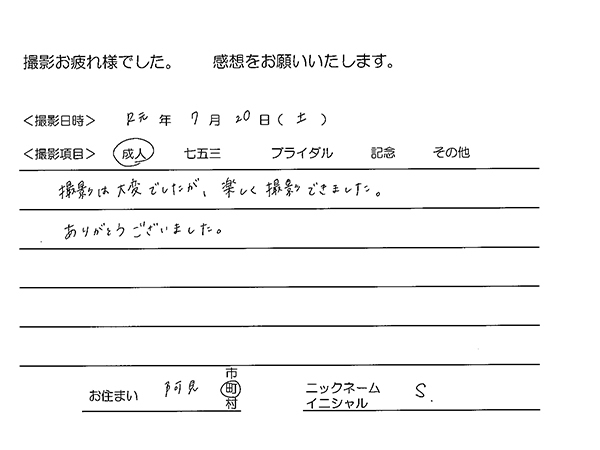 撮影お疲れ様でした。　感想をお願いいたします。
＜撮影日時＞　R元 年 7 月 20 日（ 土 ）
＜撮影項目＞　成人　七五三　ブライダル　記念　その他
撮影は大変でしたが、楽しく撮影できました。
ありがとうございました。
お住まい　阿見　市 町 村　ニックネーム イニシャル　S.